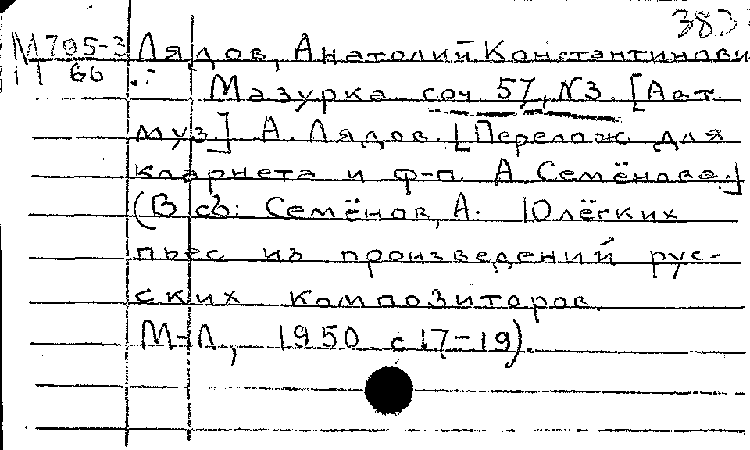 383
М 795-3 Лядов, Анатолий Константинови
66
Мазурка соч 57, N3. [Авт.
муз.] А. Лядов. [Перелож для
кларнета и ф-п. А Семёнова.]
(В сб: Семёнов, А. 10 лёгких
пьес из произведений рус-
ских композиторов.
М-Л, 1950 с 17-19).